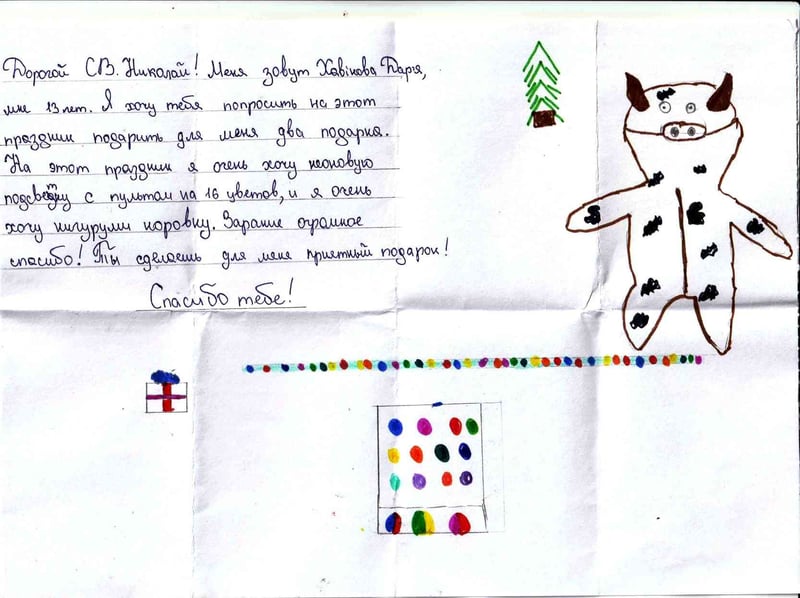 Дорогой Св. Николай! Меня зовут Хавікова Дар'я,
мне 13 лет. Я хочу тебя попросить на этот
праздник подарить для меня два подарка.
На этот праздник я очень хочу неоновую
подсветку с пультом на 16 цветов, и я очень
хочу кигуруми коровку. Зарание огромное
спасибо! Ты сделаешь для меня приятный подарок!
Спасибо тебе!